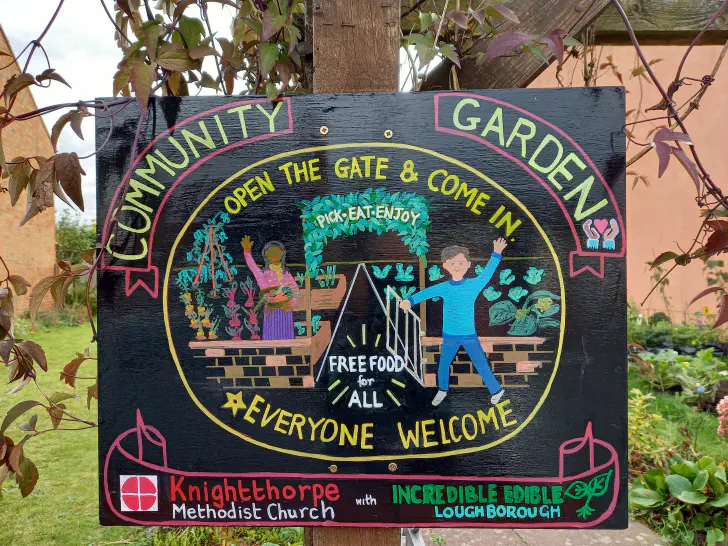 COMMUNITY GARDEN
OPEN THE GATE & COME IN.
PICK·EAT·ENJOY
FREE FOOD
for
ALL
EVERYONE WELCOME
Knightthorpe
Methodist Church
with
INCREDIBLE EDIBLE
LOUGHBOROUGH